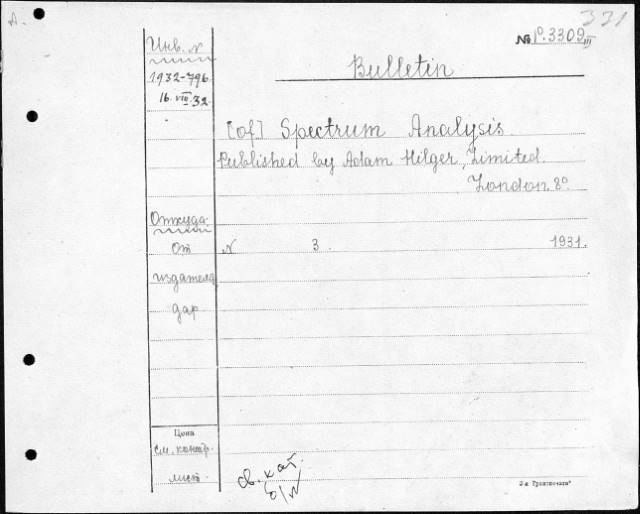 A.
331
№ p.3309 III
Инв. N
1932-796
16.VIII.32.
Bulletin
[of] Spectrum Analysis.
Published by Adam Hilger, Limited.
London. 8°.
Откуда
От
издателя
дар
N 3. 1931.
Цена
См. контр.
лист.
св. кат.
б/н